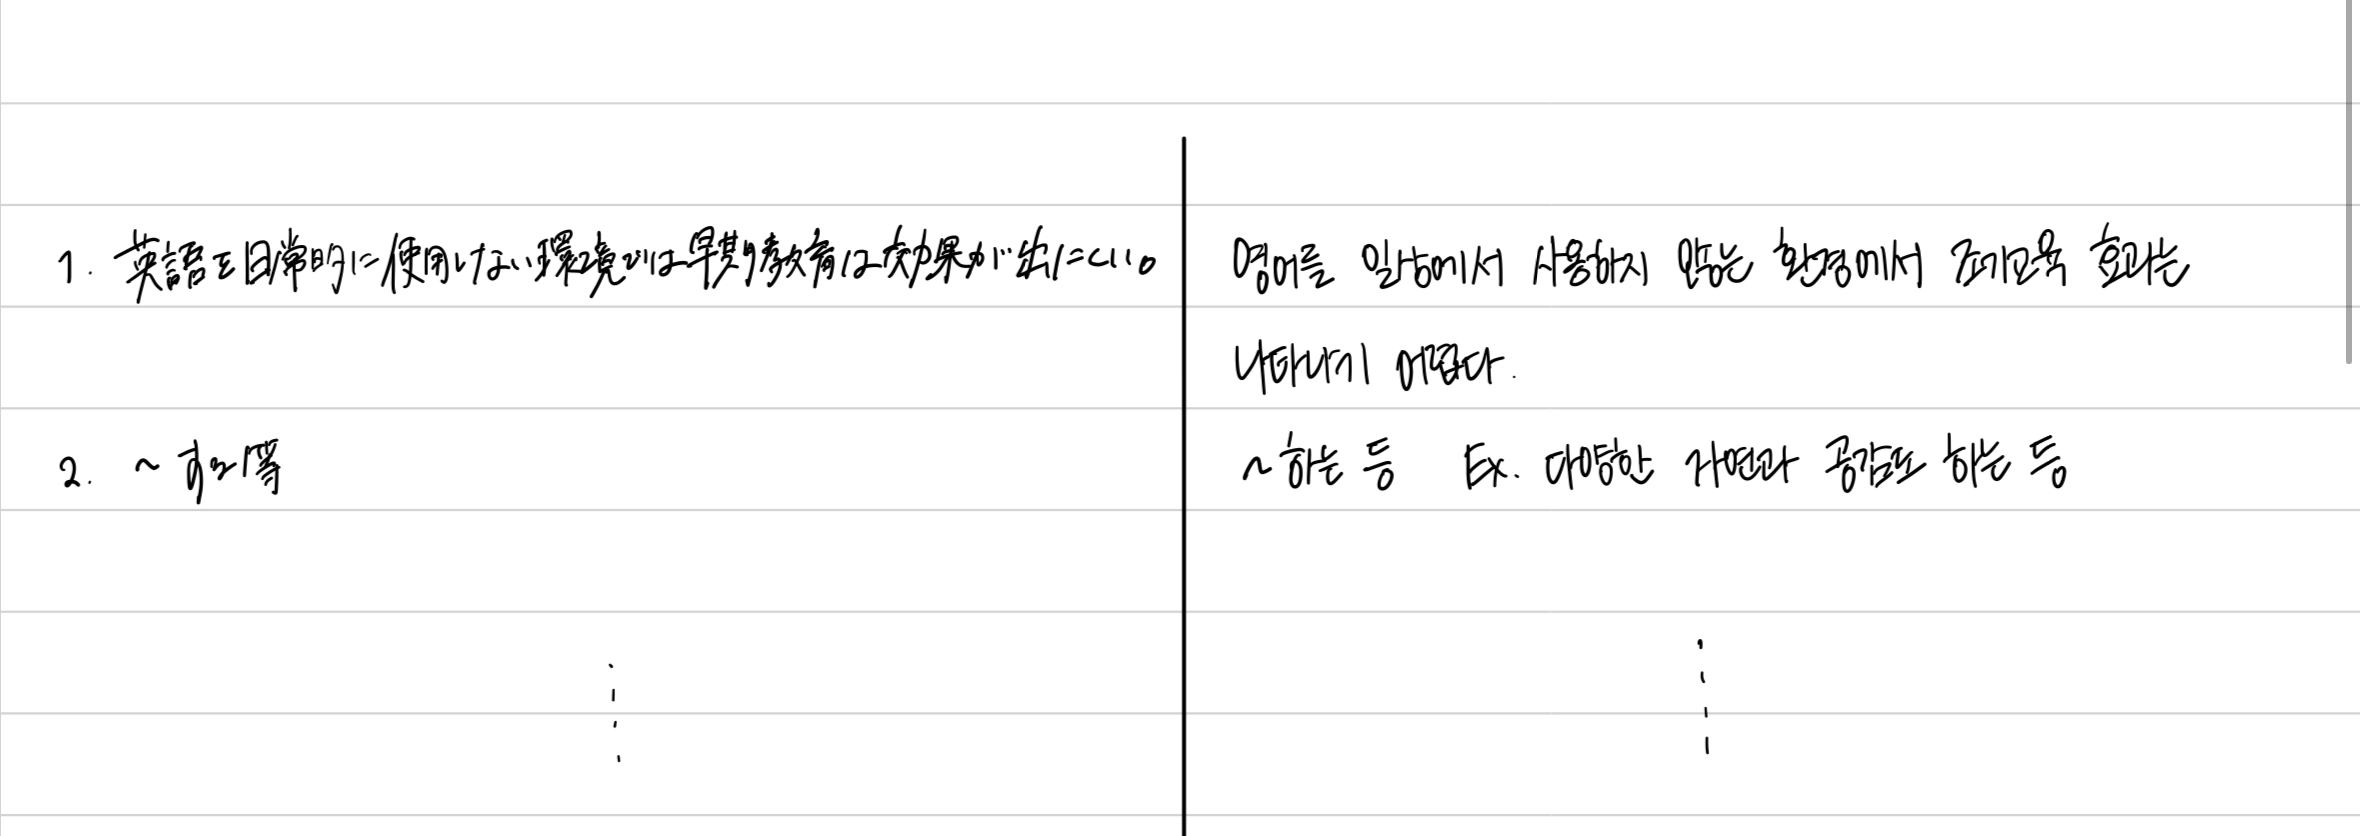 1. 英語を日常的に使用しない環境では早期教育は効果が出にくい。
영어를 일상에서 사용하지 않는 환경에서 조기교육 효과는
나타나기 어렵다.
2. ~する等
~하는 등 Ex. 다양한 자연과 공감도 하는 등